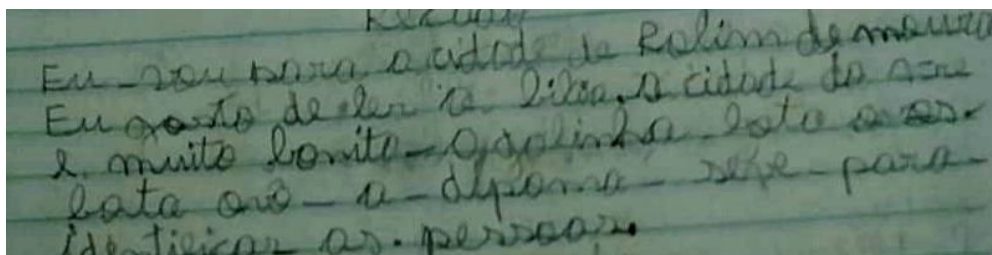 Eu vou para a cidade de Rolim de moura
Eu gosto de ler a Biblia. a cidade do Acre
e muito bonito a galinha bota
bota ovo a diploma para
identificar as pessoas.